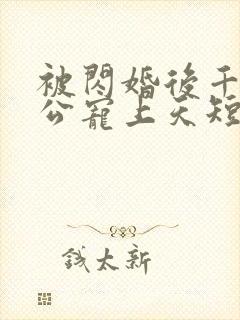 被閃婚後千
公寵上天短
錢太新